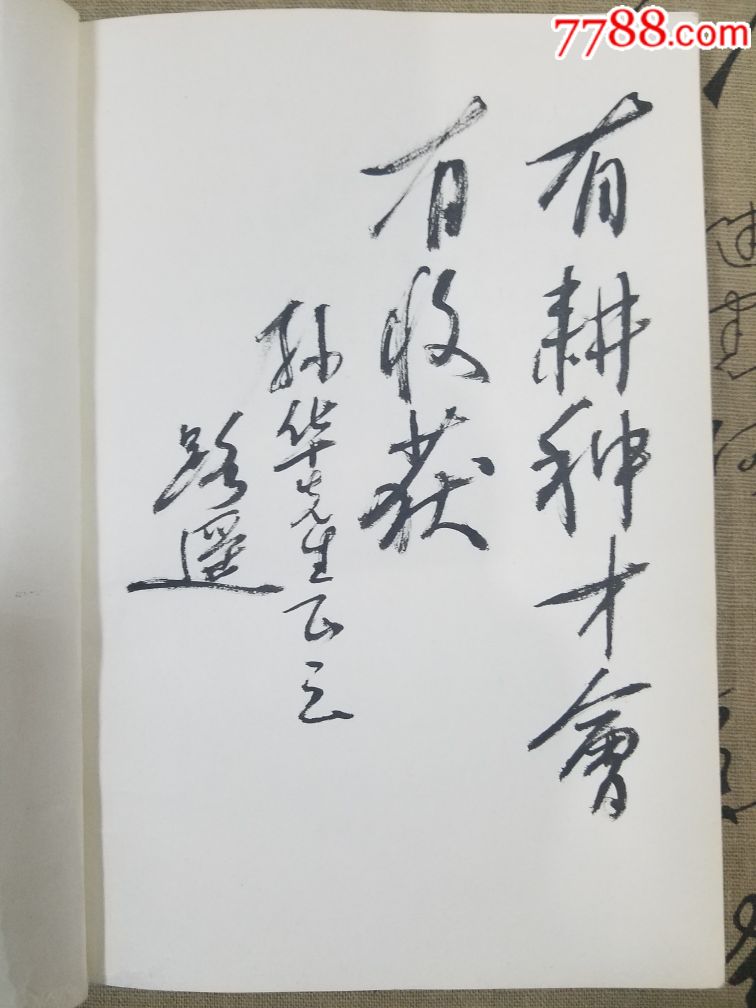 7788.com
有耕种才會
有收获
孙华先生正之
路遥